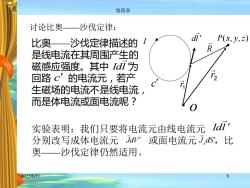 第四章
讨论比奥——沙伐定律:
比奥——沙伐定律描述的
是线电流在其周围产生的
磁感应强度。其中 Idl̄ 为
回路 c′ 的电流元,若产
生磁场的电流不是线电流,
而是体电流或面电流呢?
I dl̄′ P(x, y, z)
R̄
c′ r̄₁ r̄₂
O
实验表明:我们只要将电流元由线电流元 Idl̄′
分别改写成体电流元 JdV′ 或面电流元 JₛdS′,比
奥——沙伐定律仍然适用。
6